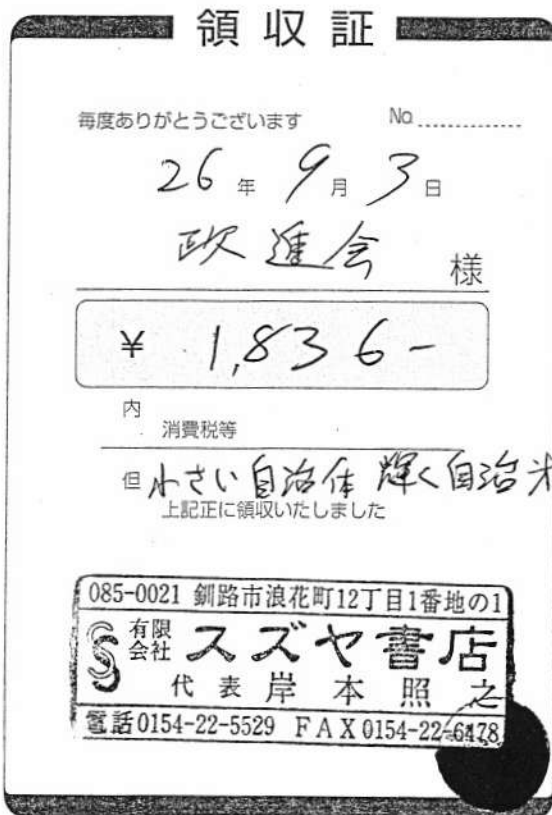 領収証
毎度ありがとうございます No
26年 9月 3日
政進会 様
¥ 1,836-
内
消費税等
但 小さい自治体 輝く自治
上記正に領収いたしました
085-0021 釧路市浪花町12丁目1番地の1
有限会社 スズヤ書店
代表 岸本照之
電話0154-22-5529 FAX0154-22-6478